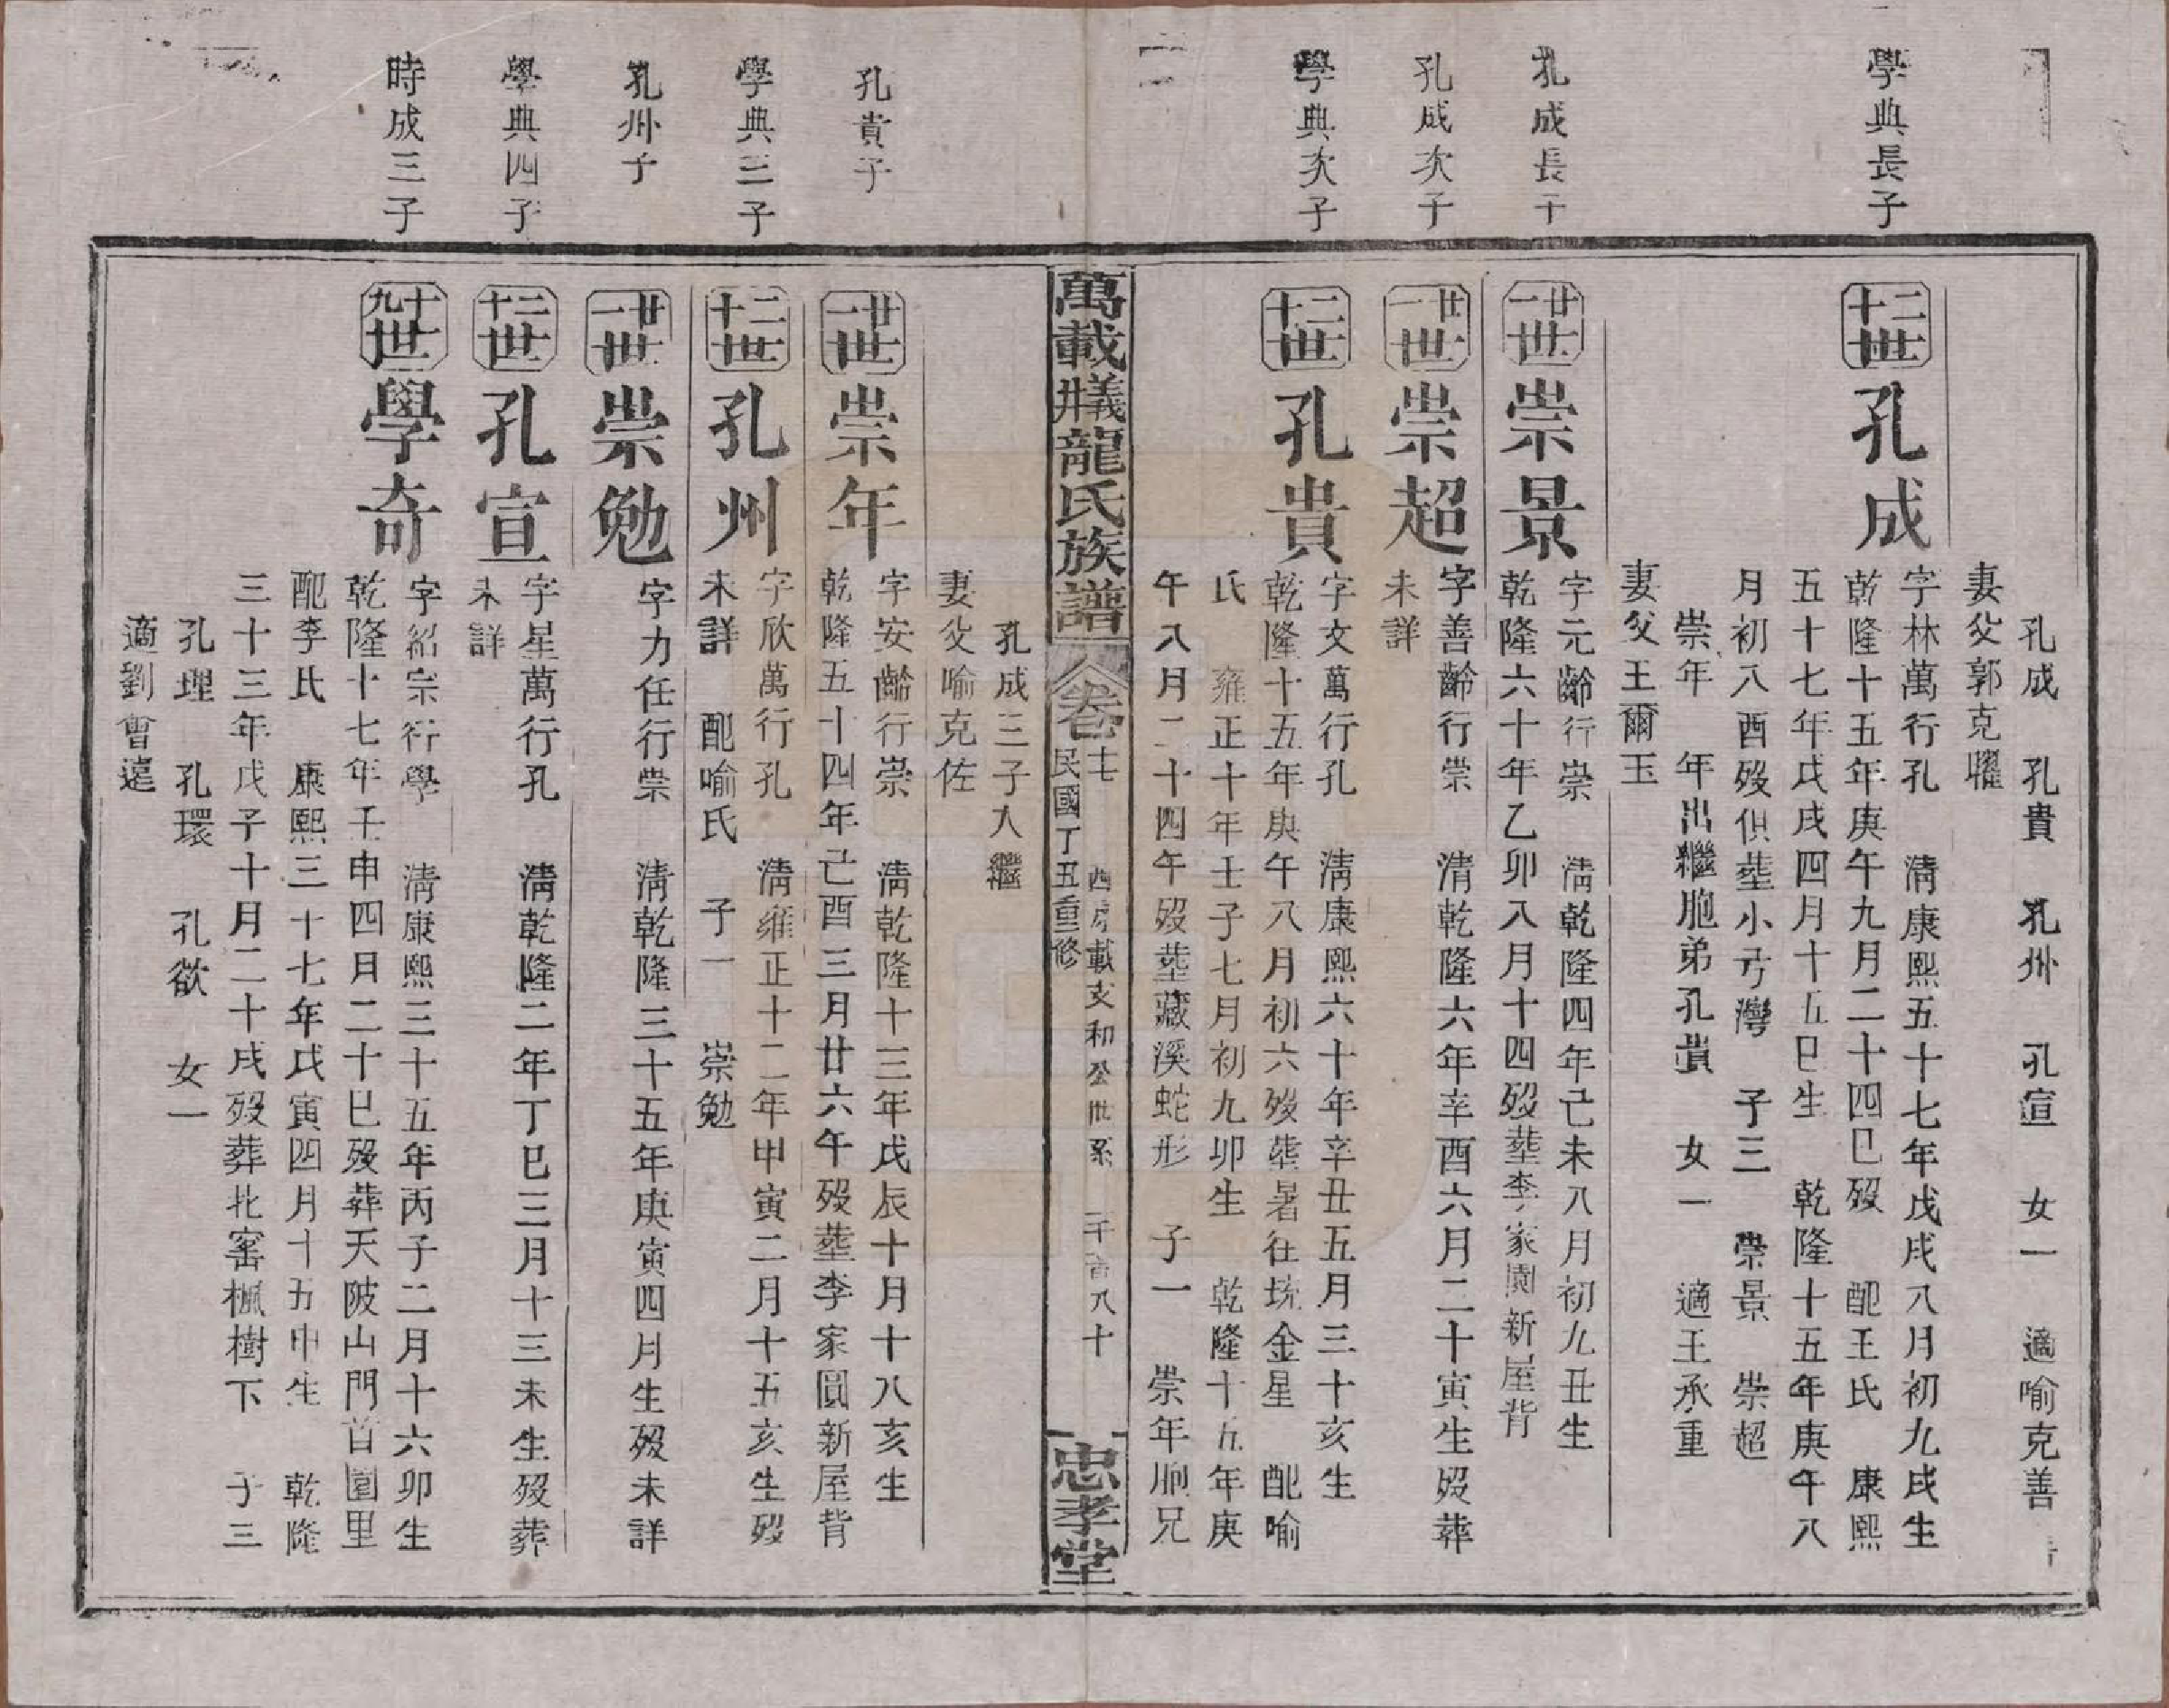 孔成　孔貴　孔州　孔宣　女一　適喻克善
妻父郭克耀
學典長子
二十世
孔成
字林萬行孔　清康熙五十七年戊戌八月初九戌生
乾隆十五年庚午九月二十四巳歿　配王氏　康熙
五十七年戊戌四月十五巳生　乾隆十五年庚午八
月初八酉歿俱塟小弓灣　子三　崇景　崇超
崇年　年出繼胞弟孔貴　女一　適王承重
妻父王爾玉
孔成長子
廿一世
崇景
字元齡行崇　清乾隆四年己未八月初九丑生
乾隆六十年乙卯八月十四歿塟李家園新屋背
孔成次子
廿一世
崇超
字善齡行崇　清乾隆六年辛酉六月二十寅生歿葬
未詳
學典次子
二十世
孔貴
字文萬行孔　清康熙六十年辛丑五月三十亥生
乾隆十五年庚午八月初六歿塟暑往塊金星　配喻
氏　雍正十年壬子七月初九卯生　乾隆十五年庚
午八月二十四午歿塟藏溪蛇形　子一　崇年胞兄
萬載㸢龍氏族譜
卷十七
民國丁丑重修
載支和公世系
忠孝堂
孔成三子入繼
妻父喻克佐
孔貴子
廿一世
崇年
字安齡行崇　清乾隆十三年戊辰十月十八亥生
乾隆五十四年己酉三月廿六午歿塟李家園新屋背
學典三子
二十世
孔州
字欣萬行孔　清雍正十二年甲寅二月十五亥生歿
未詳　配喻氏　子一　崇勉
孔州子
廿一世
崇勉
字力任行崇　清乾隆三十五年庚寅四月生歿未詳
學典四子
二十世
孔宣
字星萬行孔　清乾隆二年丁巳三月十三未生歿葬
未詳
時成三子
十九世
學奇
字紹宗行學　清康熙三十五年丙子二月十六卯生
乾隆十七年壬申四月二十巳歿葬天陂山門首園里
配李氏　康熙三十七年戊寅四月十五申生　乾隆
三十三年戊子十月二十戌歿葬北窰楓樹下　子三
孔理　孔環　孔欲　女一
適劉會遠